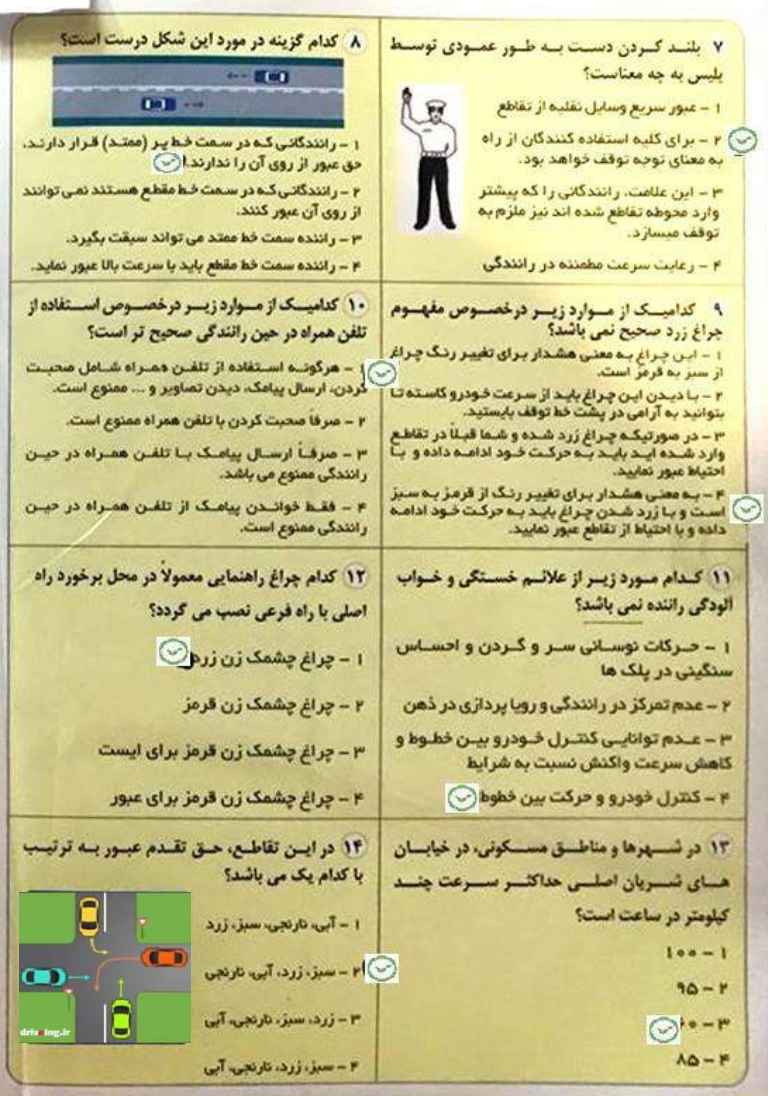 ۷ بلند کردن دست به طور عمودی توسط
پلیس به چه معناست؟
۱ - عبور سریع وسایل نقلیه از تقاطع
۲ - برای کلیه استفاده کنندگان از راه
به معنای توجه توقف خواهد بود.
۳ - این علامت، رانندگانی را که پیشتر
وارد محوطه تقاطع شده اند نیز ملزم به
توقف میسازد.
۴ - رعایت سرعت مطمئنه در رانندگی
۸ کدام گزینه در مورد این شکل درست است؟
۱ - رانندگانی که در سمت خط پر (ممتد) قرار دارند،
حق عبور از روی آن را ندارند.
۲ - رانندگانی که در سمت خط مقطع هستند نمی توانند
از روی آن عبور کنند.
۳ - راننده سمت خط ممتد می تواند سبقت بگیرد.
۴ - راننده سمت خط مقطع باید با سرعت بالا عبور نماید.
۹ کدامیک از موارد زیر درخصوص مفهوم
چراغ زرد صحیح نمی باشد؟
۱ - این چراغ به معنی هشدار برای تغییر رنگ چراغ
از سبز به قرمز است.
۲ - با دیدن این چراغ باید از سرعت خودرو کاسته تا
بتوانید به آرامی در پشت خط توقف بایستید.
۳ - در صورتیکه چراغ زرد شده و شما قبلاً در تقاطع
وارد شده اید باید به حرکت خود ادامه داده و با
احتیاط عبور نمایید.
۴ - به معنی هشدار برای تغییر رنگ از قرمز به سبز
است و با زرد شدن چراغ باید به حرکت خود ادامه
داده و با احتیاط از تقاطع عبور نمایید.
۱۰ کدامیک از موارد زیر درخصوص استفاده از
تلفن همراه در حین رانندگی صحیح تر است؟
۱ - هرگونه استفاده از تلفن همراه شامل صحبت
کردن، ارسال پیامک، دیدن تصاویر و ... ممنوع است.
۲ - صرفاً صحبت کردن با تلفن همراه ممنوع است.
۳ - صرفاً ارسال پیامک با تلفن همراه در حین
رانندگی ممنوع می باشد.
۴ - فقط خواندن پیامک از تلفن همراه در حین
رانندگی ممنوع است.
۱۱ کدام مورد زیر از علائم خستگی و خواب
آلودگی راننده نمی باشد؟
۱ - حرکات نوسانی سر و گردن و احساس
سنگینی در پلک ها
۲ - عدم تمرکز در رانندگی و رویا پردازی در ذهن
۳ - عدم توانایی کنترل خودرو بین خطوط و
کاهش سرعت واکنش نسبت به شرایط
۴ - کنترل خودرو و حرکت بین خطوط
۱۲ کدام چراغ راهنمایی معمولاً در محل برخورد راه
اصلی با راه فرعی نصب می گردد؟
۱ - چراغ چشمک زن زرد
۲ - چراغ چشمک زن قرمز
۳ - چراغ چشمک زن قرمز برای ایست
۴ - چراغ چشمک زن قرمز برای عبور
۱۳ در شهرها و مناطق مسکونی، در خیابان
های شریان اصلی حداکثر سرعت چند
کیلومتر در ساعت است؟
۱ - ۱۰۰
۲ - ۹۵
۳ - ۶۰
۴ - ۸۵
۱۴ در این تقاطع، حق تقدم عبور به ترتیب
با کدام یک می باشد؟
۱ - آبی، نارنجی، سبز، زرد
۲ - سبز، زرد، آبی، نارنجی
۳ - زرد، سبز، نارنجی، آبی
۴ - سبز، زرد، نارنجی، آبی